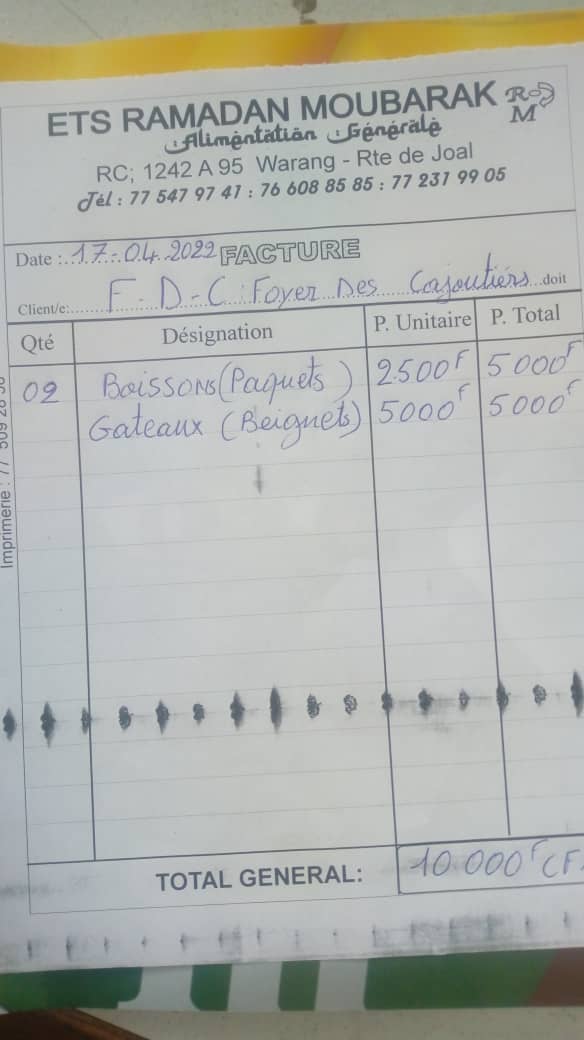 ETS RAMADAN MOUBARAK RM
Alimentation Générale
RC; 1242 A 95 Warang - Rte de Joal
Tél : 77 547 97 41 : 76 608 85 85 : 77 231 99 05
Date : 17-04-2022 FACTURE
Client/e: F-D-C: Foyer Des Cajoutiers doit
Qté Désignation P. Unitaire P. Total
02 Boissons (Paquets) 2500F 5000F
Gateaux (Beignets) 5000F 5000F
TOTAL GENERAL: 10.000F CF
Imprimerie : 77 509 26